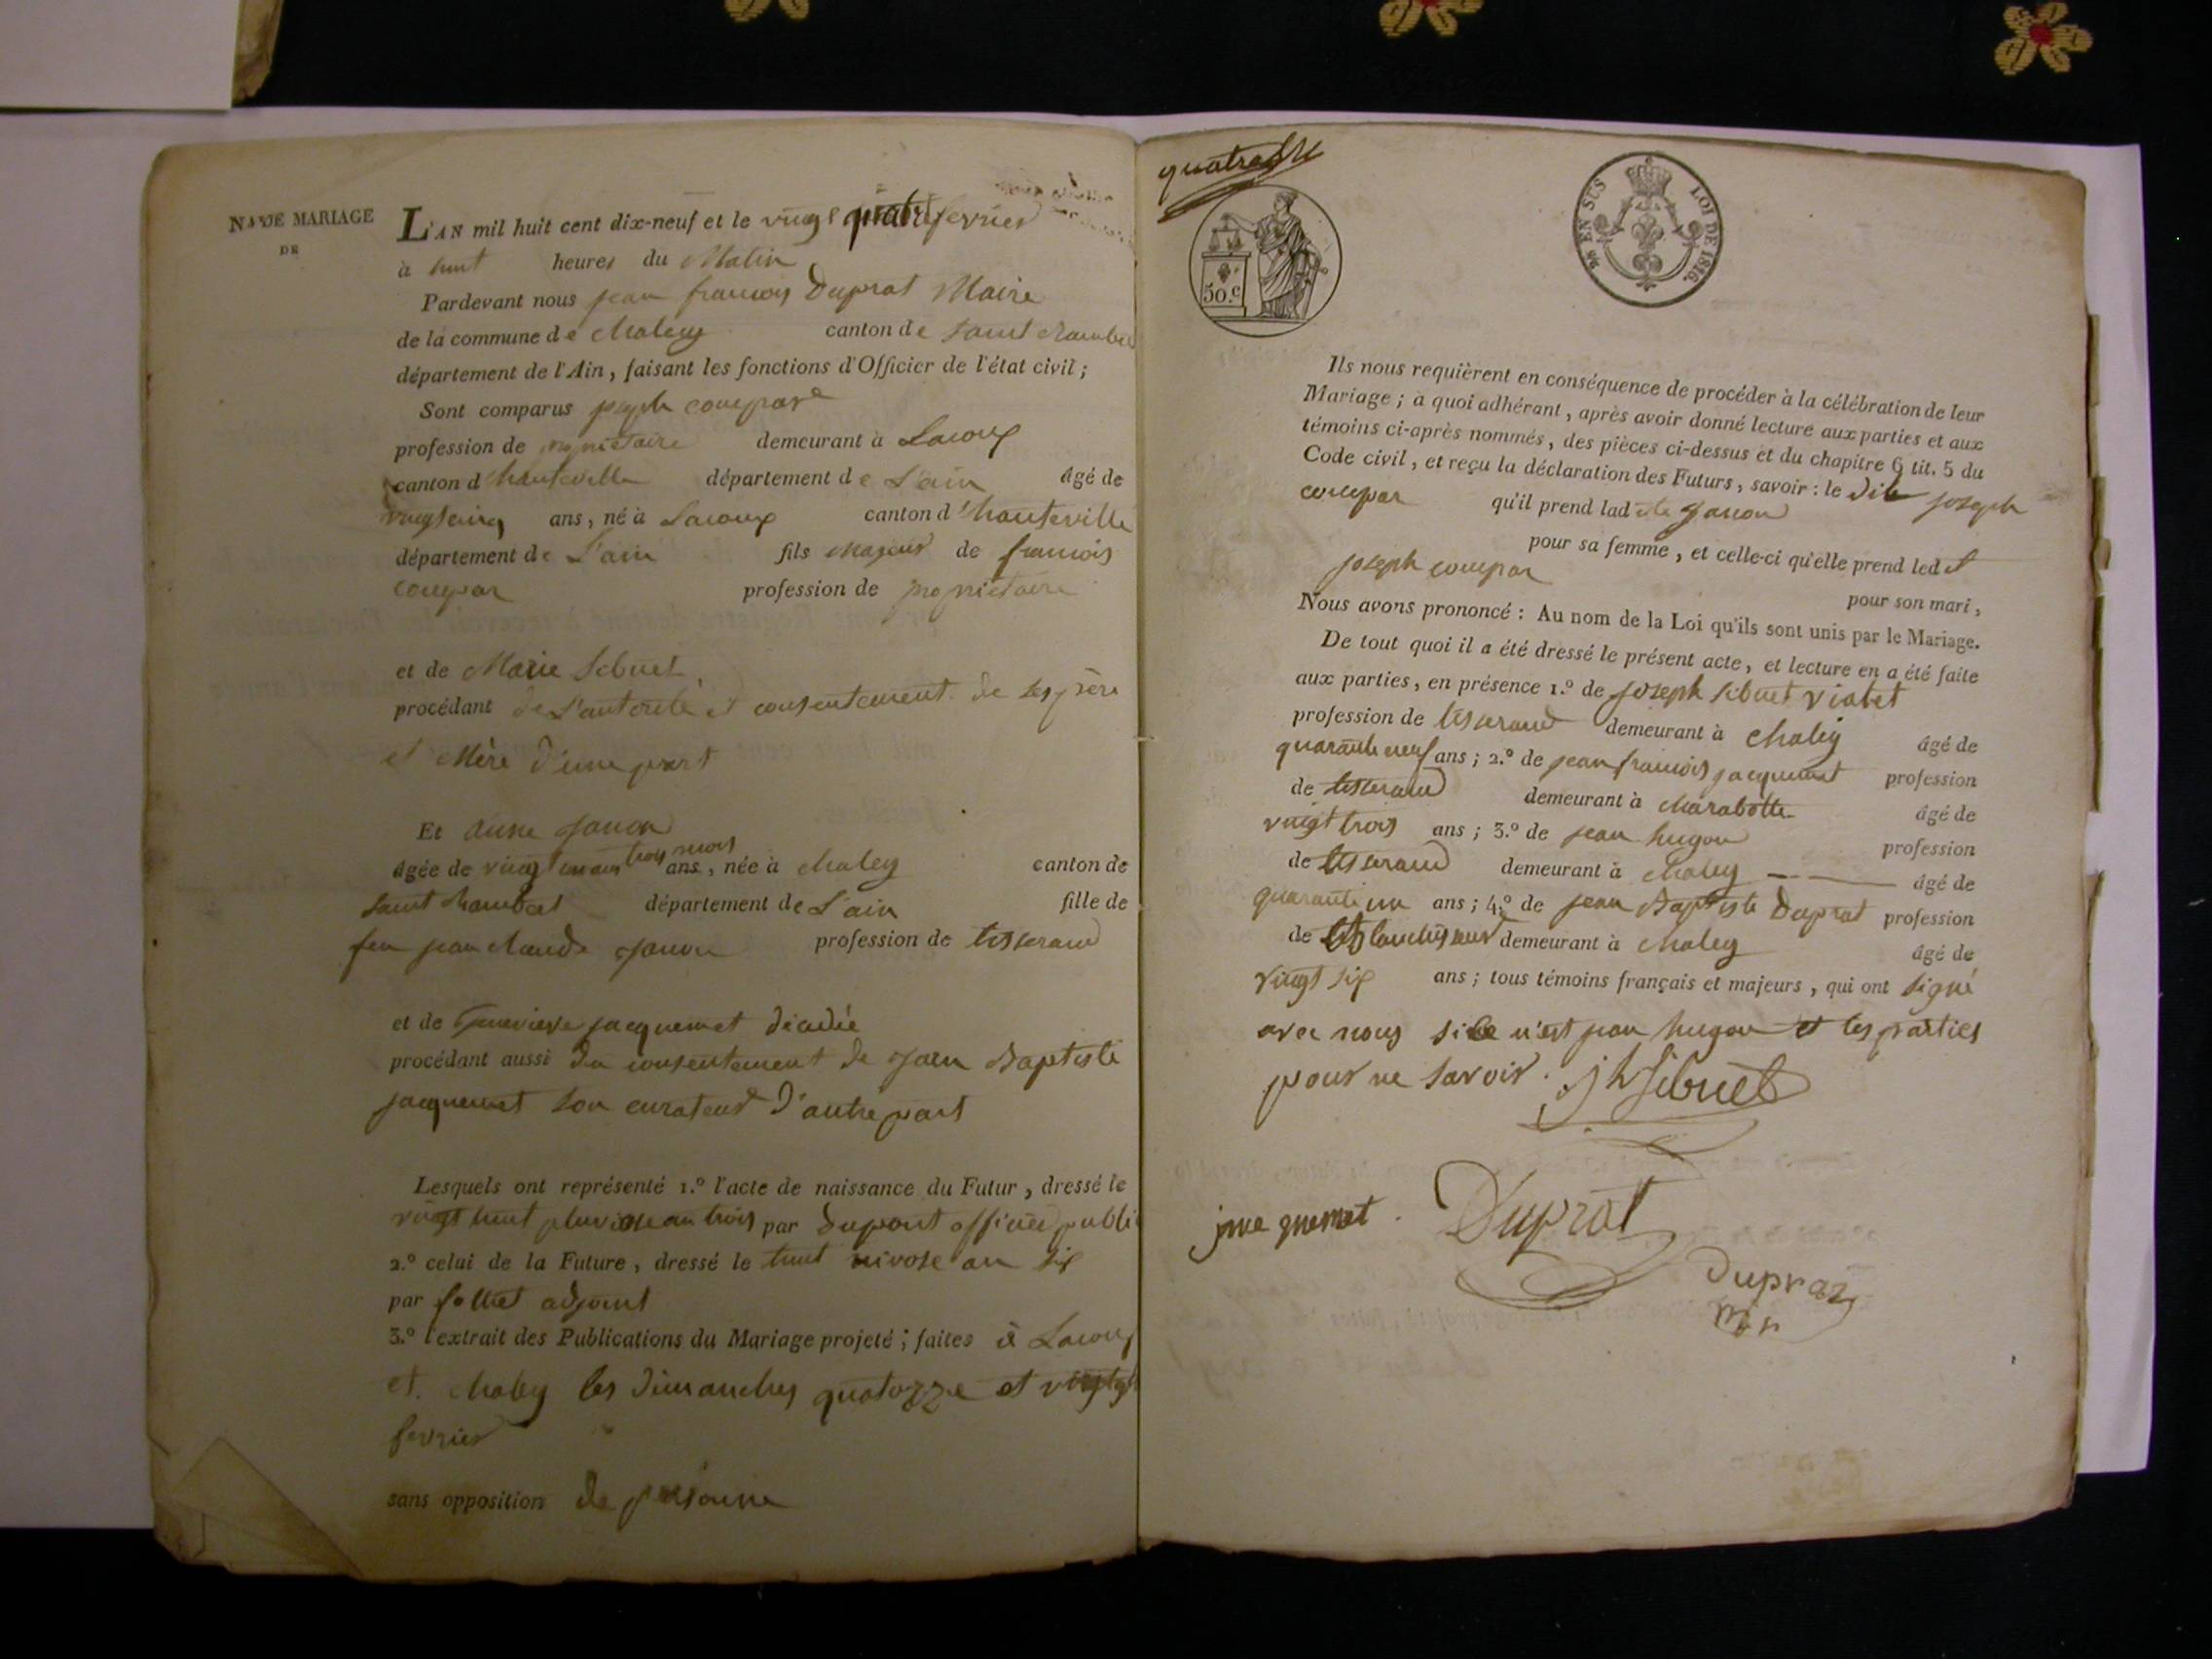 N.º DE MARIAGE
DE
L'AN mil huit cent dix-neuf et le vingt quatre fevrier
à huit heures du Matin
Pardevant nous jean francois Duprat Maire
de la commune de Chaley canton de saint Rambert
département de l'Ain, faisant les fonctions d'Officier de l'état civil ;
Sont comparus joseph compare
profession de propriétaire demeurant à Lacoux
canton d'hauteville département de L'ain âgé de
vingt cinq ans, né à Lacoux canton d'hauteville
département de L'ain fils majeur de francois
compar profession de proprietaire
et de Marie Sibuet,
procédant de L'autorité et consentement de ses père
et Mère d'une part
Et anne Janon
âgée de vingt un ans trois mois ans, née à chaley canton de
saint Rambert département de L'ain fille de
feu jean claude Janon profession de tisserand
et de Genevieve jacquemet décédée
procédant aussi du consentement de Jean Baptiste
jacquemet son curateur d'autre part
Lesquels ont représenté 1.º l'acte de naissance du Futur, dressé le
vingt huit pluviose an trois par Dupont officier public
2.º celui de la Future, dressé le huit nivose an six
par follet adjoint
3.º l'extrait des Publications du Mariage projeté ; faites à Lacoux
et chaley les dimanches quatozze et vingt
fevrier
sans opposition de personne
quatre
50.c
EN SUS LOI DE 1816.
Ils nous requièrent en conséquence de procéder à la célébration de leur
Mariage ; à quoi adhérant, après avoir donné lecture aux parties et aux
témoins ci-après nommés, des pièces ci-dessus et du chapitre 6 tit. 5 du
Code civil, et reçu la déclaration des Futurs, savoir : le dit joseph
compar qu'il prend ladite Janon
pour sa femme, et celle-ci qu'elle prend ledit
joseph compar
pour son mari,
Nous avons prononcé : Au nom de la Loi qu'ils sont unis par le Mariage.
De tout quoi il a été dressé le présent acte, et lecture en a été faite
aux parties, en présence 1.º de joseph sibuet viabet
profession de tisserand demeurant à chaley âgé de
quarante neuf ans ; 2.º de jean francois jacquemet profession
de tisserand demeurant à Charabotte âgé de
vingt trois ans ; 3.º de jean hugon profession
de tisserand demeurant à chaley âgé de
quarante un ans ; 4.º de jean Baptiste Duprat profession
de blanchisseur demeurant à chaley âgé de
vingt six ans ; tous témoins français et majeurs, qui ont signé
avec nous si ce n'est jean hugon et les parties
pour ne savoir. jh Sibuet
jacquemet. Duprat
Dupraz